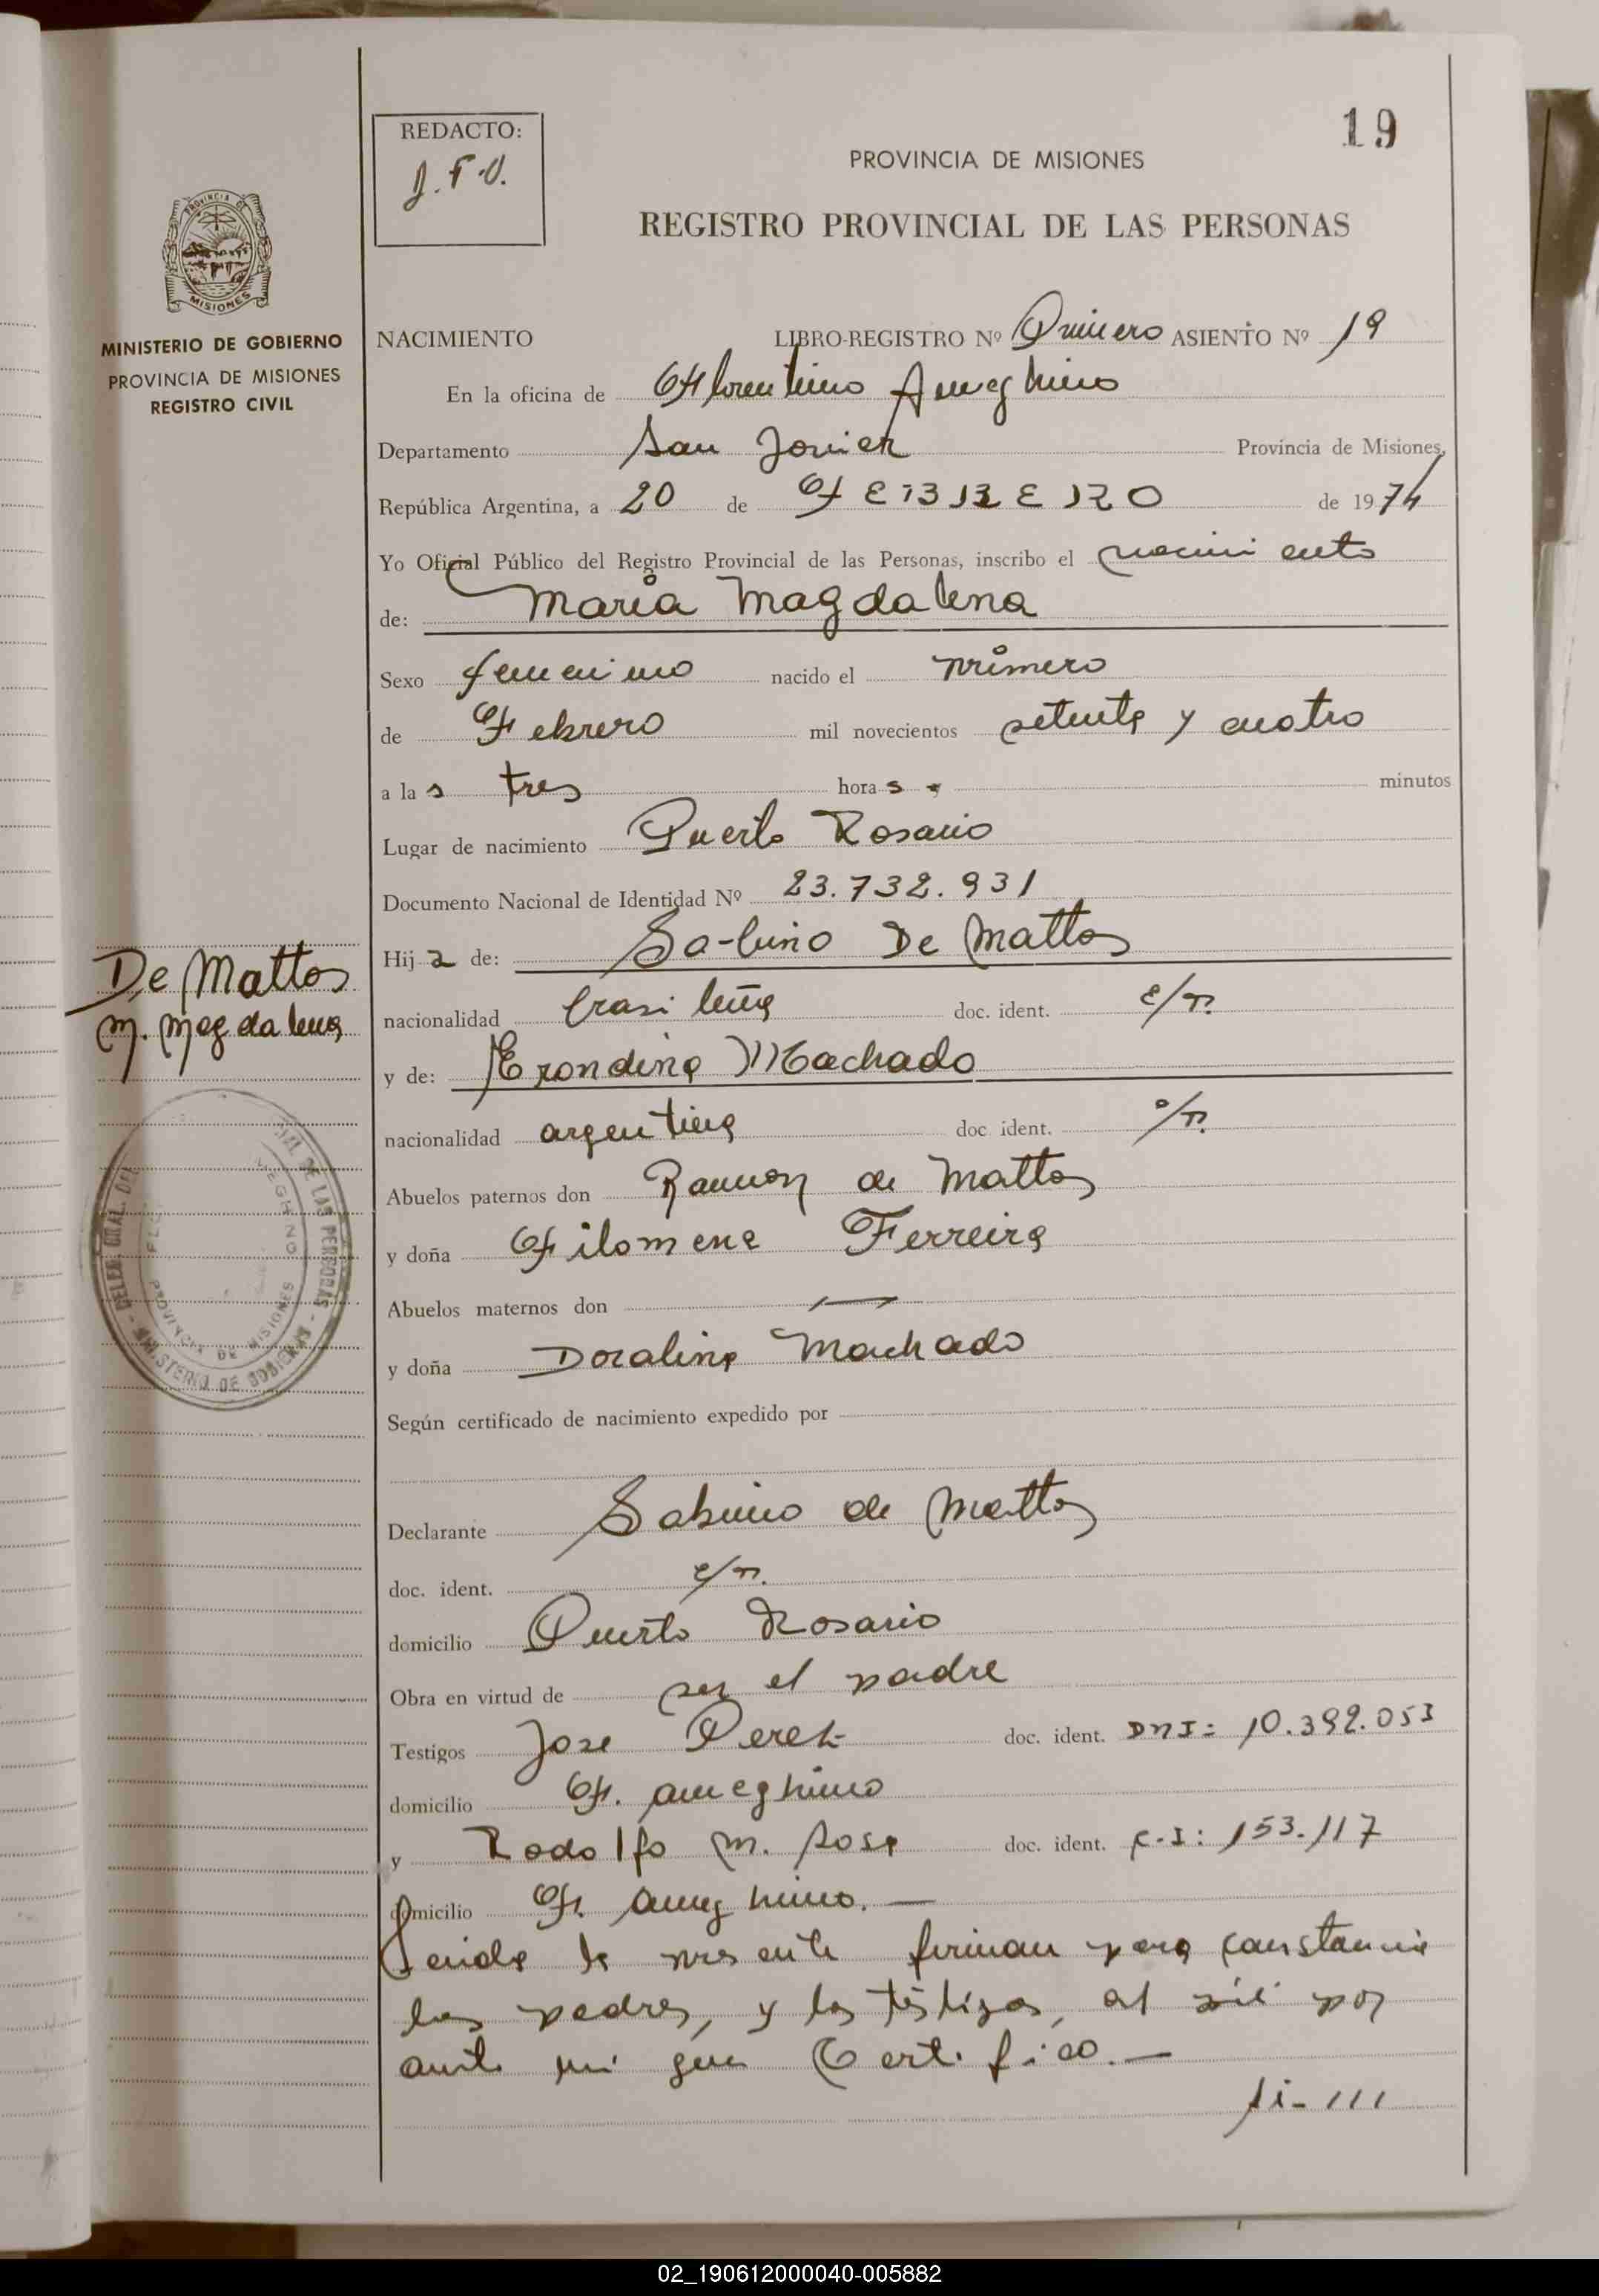 19
REDACTO:
J.F.O.
PROVINCIA DE MISIONES
REGISTRO PROVINCIAL DE LAS PERSONAS
PROVINCIA DE
MISIONES
MINISTERIO DE GOBIERNO
PROVINCIA DE MISIONES
REGISTRO CIVIL
NACIMIENTO LIBRO-REGISTRO Nº Primero ASIENTO Nº 19
En la oficina de Florentino Ameghino
Departamento San Javier Provincia de Misiones,
República Argentina, a 20 de FEBRERO de 1974
Yo Oficial Público del Registro Provincial de las Personas, inscribo el nacimiento
de: Maria Magdalena
Sexo femenino nacido el primero
de Febrero mil novecientos setenta y cuatro
a la s tres hora s -
minutos
Lugar de nacimiento Puerto Rosario
Documento Nacional de Identidad Nº 23.732.931
Hij a de: Sabino De Mattos
De Mattos
M. Magdalena
nacionalidad brasileña doc. ident.
y de: Erondina Machado
nacionalidad argentina doc ident.
Abuelos paternos don Ramon de Mattos
y doña Filomena Ferreira
Abuelos maternos don —
y doña Doralina Machado
DELEG. GRAL. DEL DE LAS PERSONAS - MINISTERIO DE GOBIERNO -
PROVINCIA DE MISIONES
Según certificado de nacimiento expedido por
Declarante Sabino de Mattos
doc. ident.
domicilio Puerto Rosario
Obra en virtud de ser el padre
Testigos Jose Perez doc. ident. DNI: 10.392.053
domicilio F. Ameghino
y Rodolfo M. Sosa doc. ident. C.I: 153.117
domicilio F. Ameghino. —
Leida la presente firman para constancia
los padres, y los testigos, al pié por
ante mi que Certifico. —
///
02_190612000040-005882